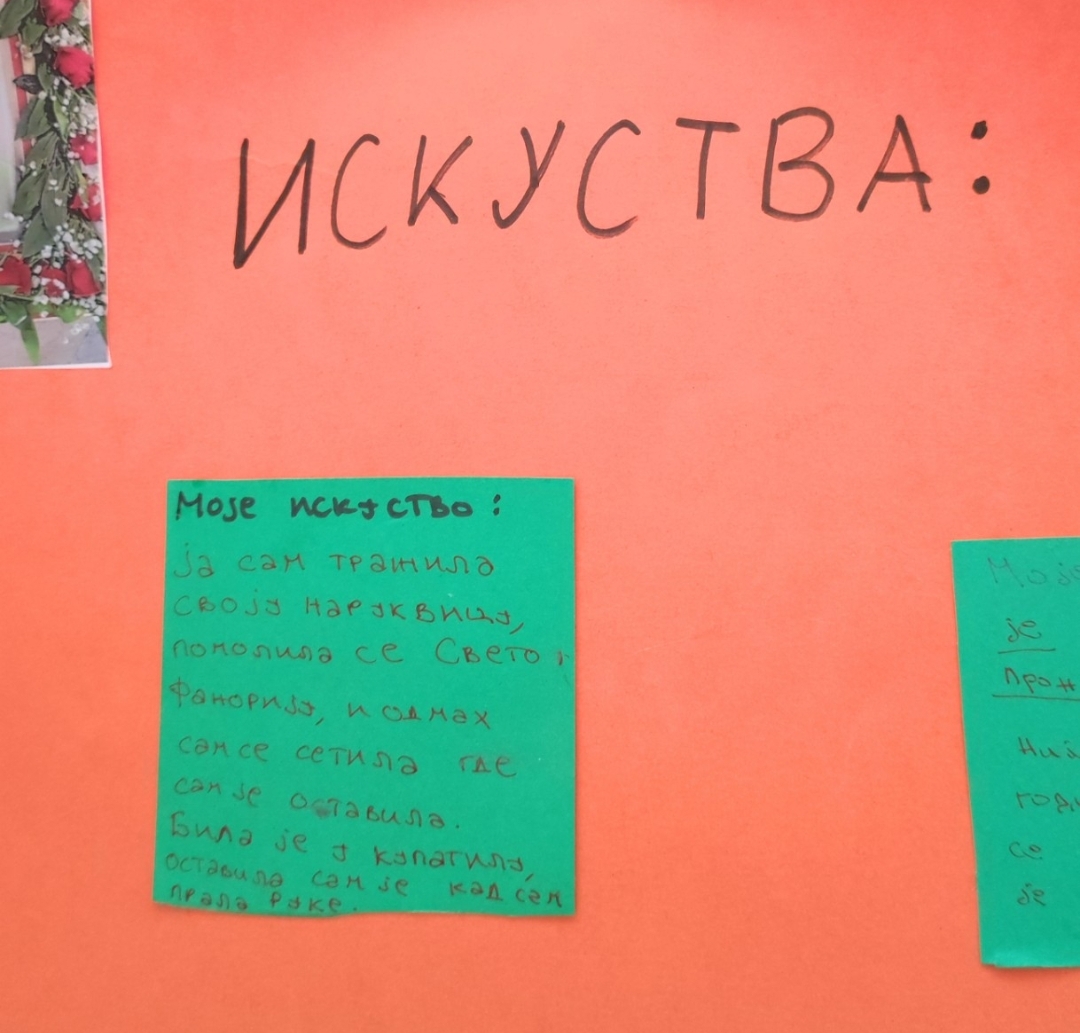 ИСКУСТВА:
Моје искуство:
ја сам тражила
своју наруквицу,
помолила се Свето
Фанорију, и одмах
сам се сетила где
сам је оставила.
Била је у купатилу,
оставила сам је кад сам
прала руке.
Моје
је